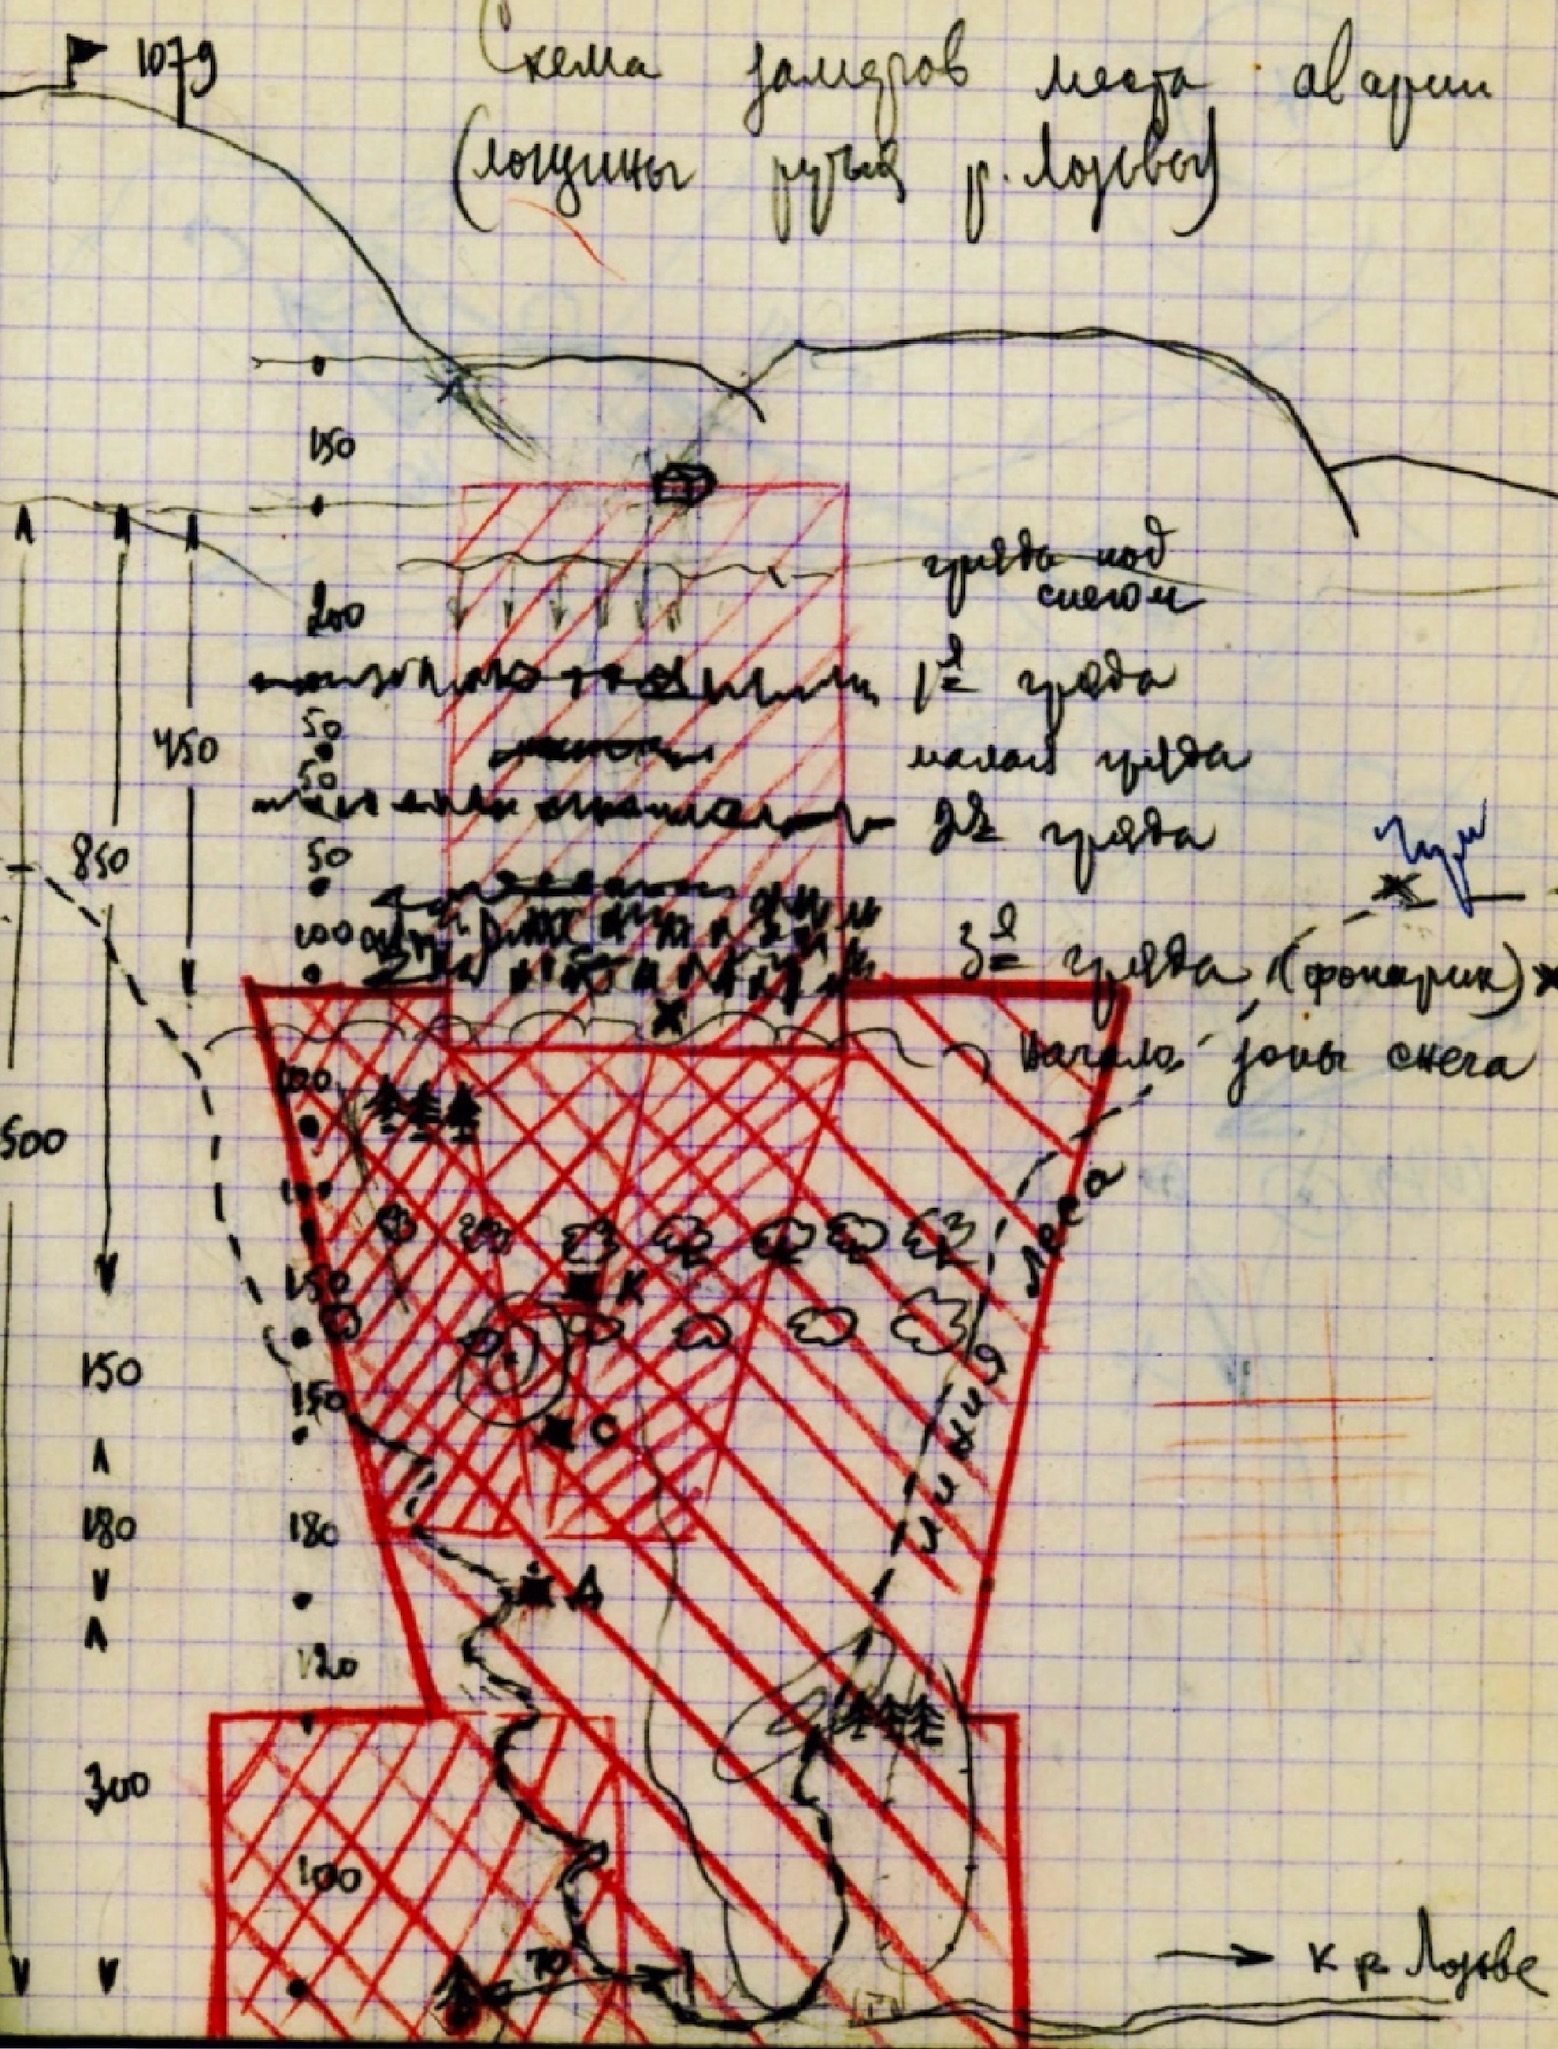 1079
Схема замеров места аварии
(лощины ручья р. Лозьвы)
150
гряда под
снегом
200
1я гряда
50
малая гряда
450
50
2я гряда
850
50
100
3я гряда (фонарик)
Начало зоны снега
100
500
100
150
К
150
150
С
линия леса
180
180
Д
120
300
100
70
к р. Лозьве